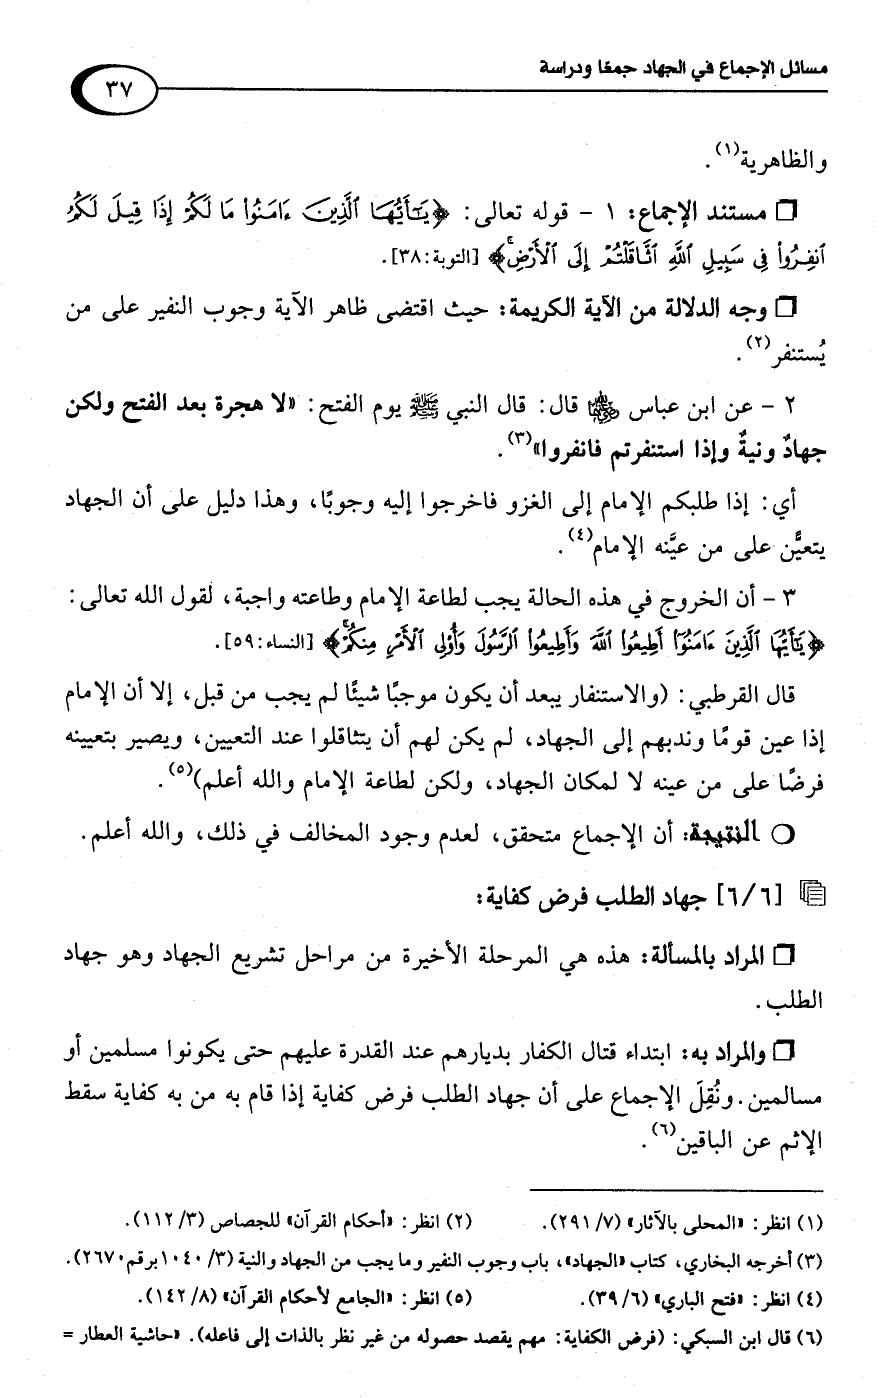 مسائل الإجماع في الجهاد جمعًا ودراسة
٣٧
والظاهرية(١).
❒ مستند الإجماع: ١ - قوله تعالى: ﴿يَٰٓأَيُّهَا ٱلَّذِينَ ءَامَنُوا۟ مَا لَكُمْ إِذَا قِيلَ لَكُمُ
ٱنفِرُوا۟ فِى سَبِيلِ ٱللَّهِ ٱثَّاقَلْتُمْ إِلَى ٱلْأَرْضِ ۚ﴾ [التوبة:٣٨].
❒ وجه الدلالة من الآية الكريمة: حيث اقتضى ظاهر الآية وجوب النفير على من
يُستنفر(٢).
٢ - عن ابن عباس ﵄ قال: قال النبي ﷺ يوم الفتح: «لا هجرة بعد الفتح ولكن
جهادٌ ونيةٌ وإذا استنفرتم فانفروا»(٣).
أي: إذا طلبكم الإمام إلى الغزو فاخرجوا إليه وجوبًا، وهذا دليل على أن الجهاد
يتعيَّن على من عيَّنه الإمام(٤).
٣ - أن الخروج في هذه الحالة يجب لطاعة الإمام وطاعته واجبة، لقول الله تعالى:
﴿يَٰٓأَيُّهَا ٱلَّذِينَ ءَامَنُوٓا۟ أَطِيعُوا۟ ٱللَّهَ وَأَطِيعُوا۟ ٱلرَّسُولَ وَأُو۟لِى ٱلْأَمْرِ مِنكُمْ ۖ﴾ [النساء:٥٩].
قال القرطبي: (والاستنفار يبعد أن يكون موجبًا شيئًا لم يجب من قبل، إلا أن الإمام
إذا عين قومًا وندبهم إلى الجهاد، لم يكن لهم أن يتثاقلوا عند التعيين، ويصير بتعيينه
فرضًا على من عينه لا لمكان الجهاد، ولكن لطاعة الإمام والله أعلم)(٥).
❍ النتيجة: أن الإجماع متحقق، لعدم وجود المخالف في ذلك، والله أعلم.
[٦/٦] جهاد الطلب فرض كفاية:
❒ المراد بالمسألة: هذه هي المرحلة الأخيرة من مراحل تشريع الجهاد وهو جهاد
الطلب.
❒ والمراد به: ابتداء قتال الكفار بديارهم عند القدرة عليهم حتى يكونوا مسلمين أو
مسالمين. ونُقِلَ الإجماع على أن جهاد الطلب فرض كفاية إذا قام به من به كفاية سقط
الإثم عن الباقين(٦).
(١) انظر: «المحلى بالآثار» (٧/ ٢٩١). (٢) انظر: «أحكام القرآن» للجصاص (٣/ ١١٢).
(٣) أخرجه البخاري، كتاب «الجهاد»، باب وجوب النفير وما يجب من الجهاد والنية (٣/ ١٠٤٠ برقم ٢٦٧٠).
(٤) انظر: «فتح الباري» (٦/ ٣٩). (٥) انظر: «الجامع لأحكام القرآن» (٨/ ١٤٢).
(٦) قال ابن السبكي: (فرض الكفاية: مهم يقصد حصوله من غير نظر بالذات إلى فاعله). «حاشية العطار =